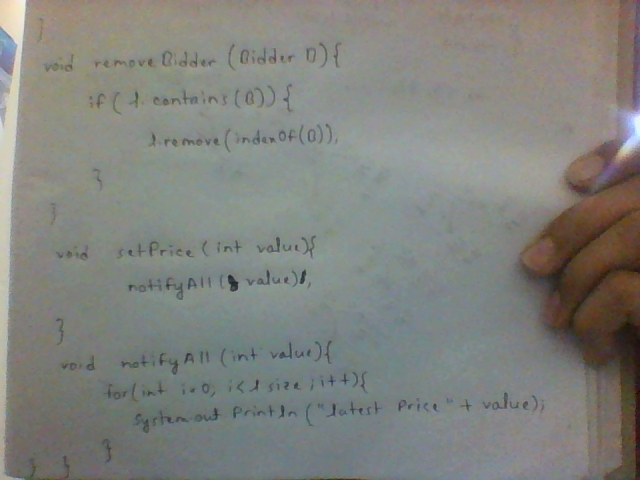 }
void removeBidder (Bidder B){
if ( l. contains (B)) {
l.remove (indexOf(B));
}
}
void setPrice ( int value){
notifyAll ( value);
}
void notifyAll (int value){
for(int i=0; i<l size ; i++){
System.out Println ("latest Price" + value);
}
} }